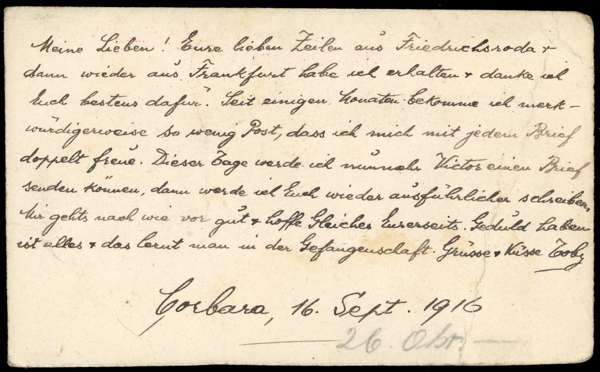 Meine Lieben! Eure lieben Zeilen aus Friedrichsroda +
dann wieder aus Frankfurt habe ich erhalten + danke ich
Euch bestens dafür. Seit einigen Monaten bekomme ich merk-
würdigerweise so wenig Post, dass ich mich mit jedem Brief
doppelt freue. Dieser Tage werde ich nunmehr Victor einen Brief
senden können, dann werde ich Euch wieder ausführlicher schreiben,
Mir gehts nach wie vor gut + hoffe Gleiches Eurerseits. Geduld haben
ist alles + das lernt man in der Gefangenschaft. Grüsse + Küsse Toby
Corbara, 16. Sept. 1916
26. Okt.